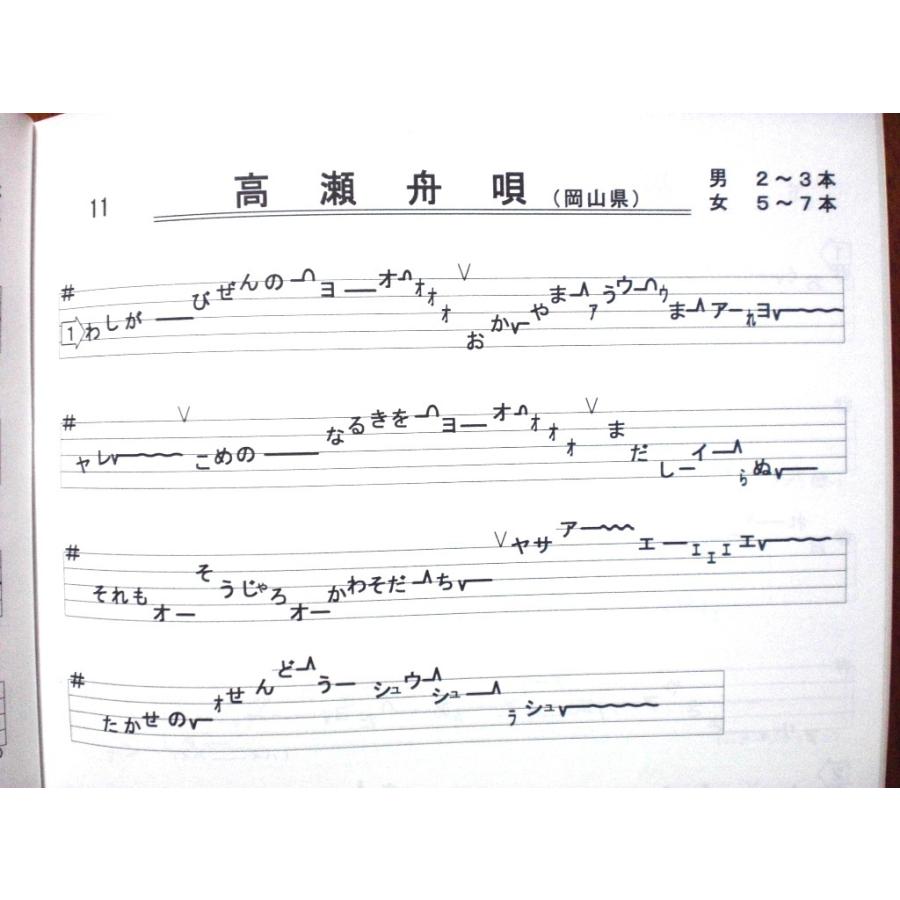 11 高瀬舟唄(岡山県) 男 2〜3本
女 5〜7本
# 1 わしが びぜんの ヨ オ ォ ォ ォ ∨ おか やまァ うウゥ まアれヨ
# ャレ ∨ こめの なるきを ヨ オ ォ ォ ォ ∨ まだ しイ らぬ
# それもオー そうじゃろオー かわそだち ∨ ヤサア エーェェェエ
# たかせのォせんどうー シュウシュ ぅシュ